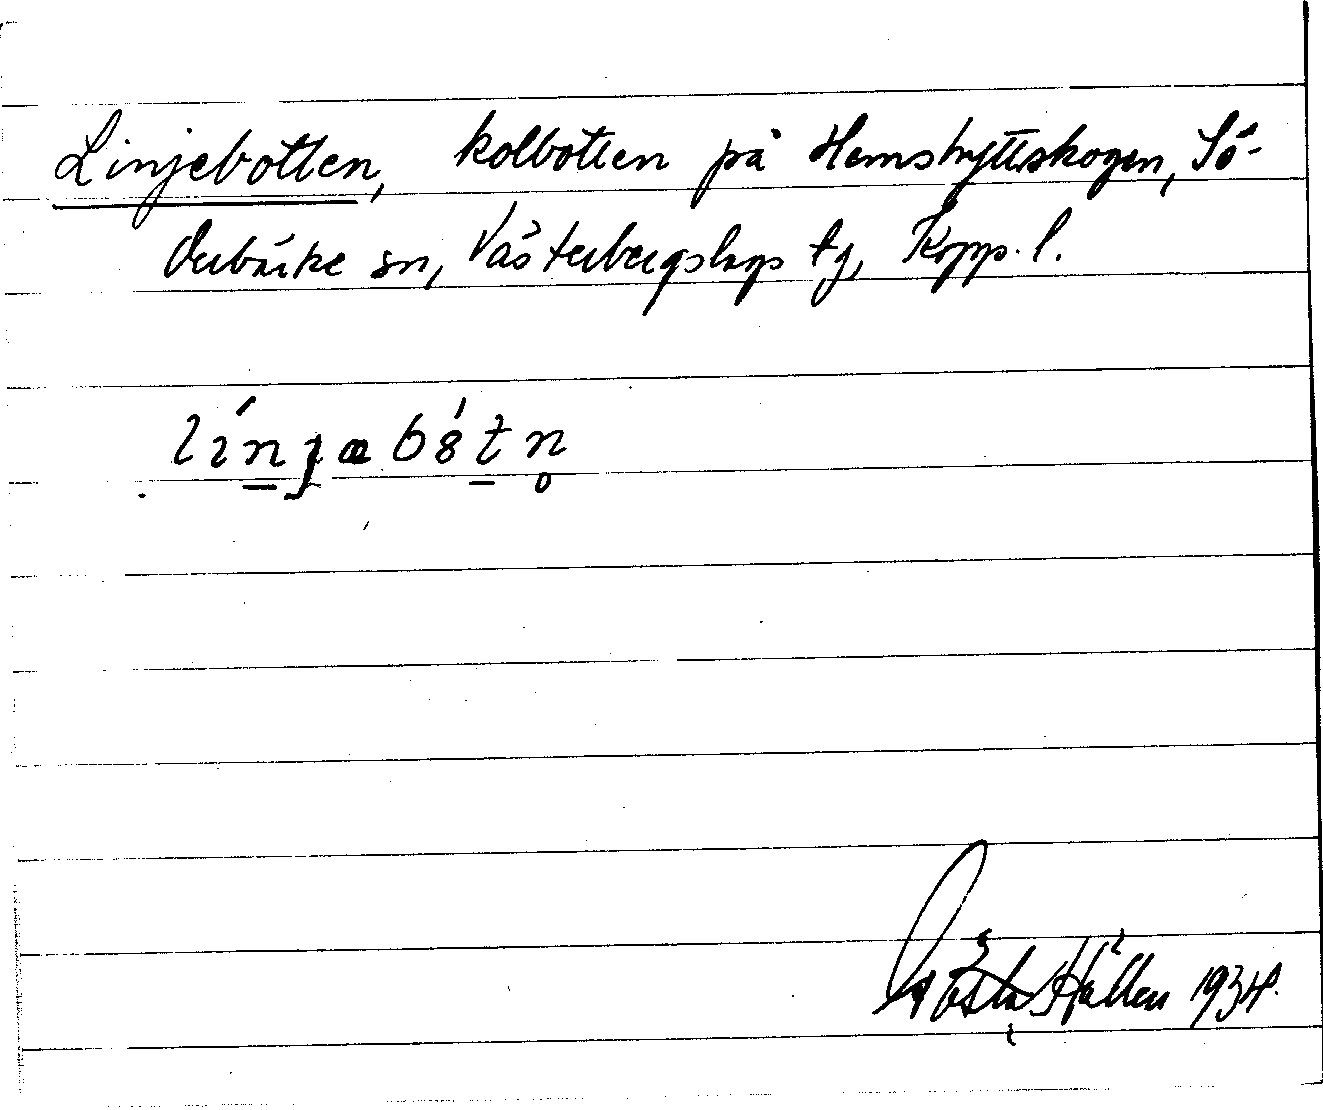 Linjebotten, kolbotten på Hemshyttskogen, Sö-
derbärke sn, Västerbergslags tg, Kopp. l.
línjəbótn̥
Gösta Hållen 1934.